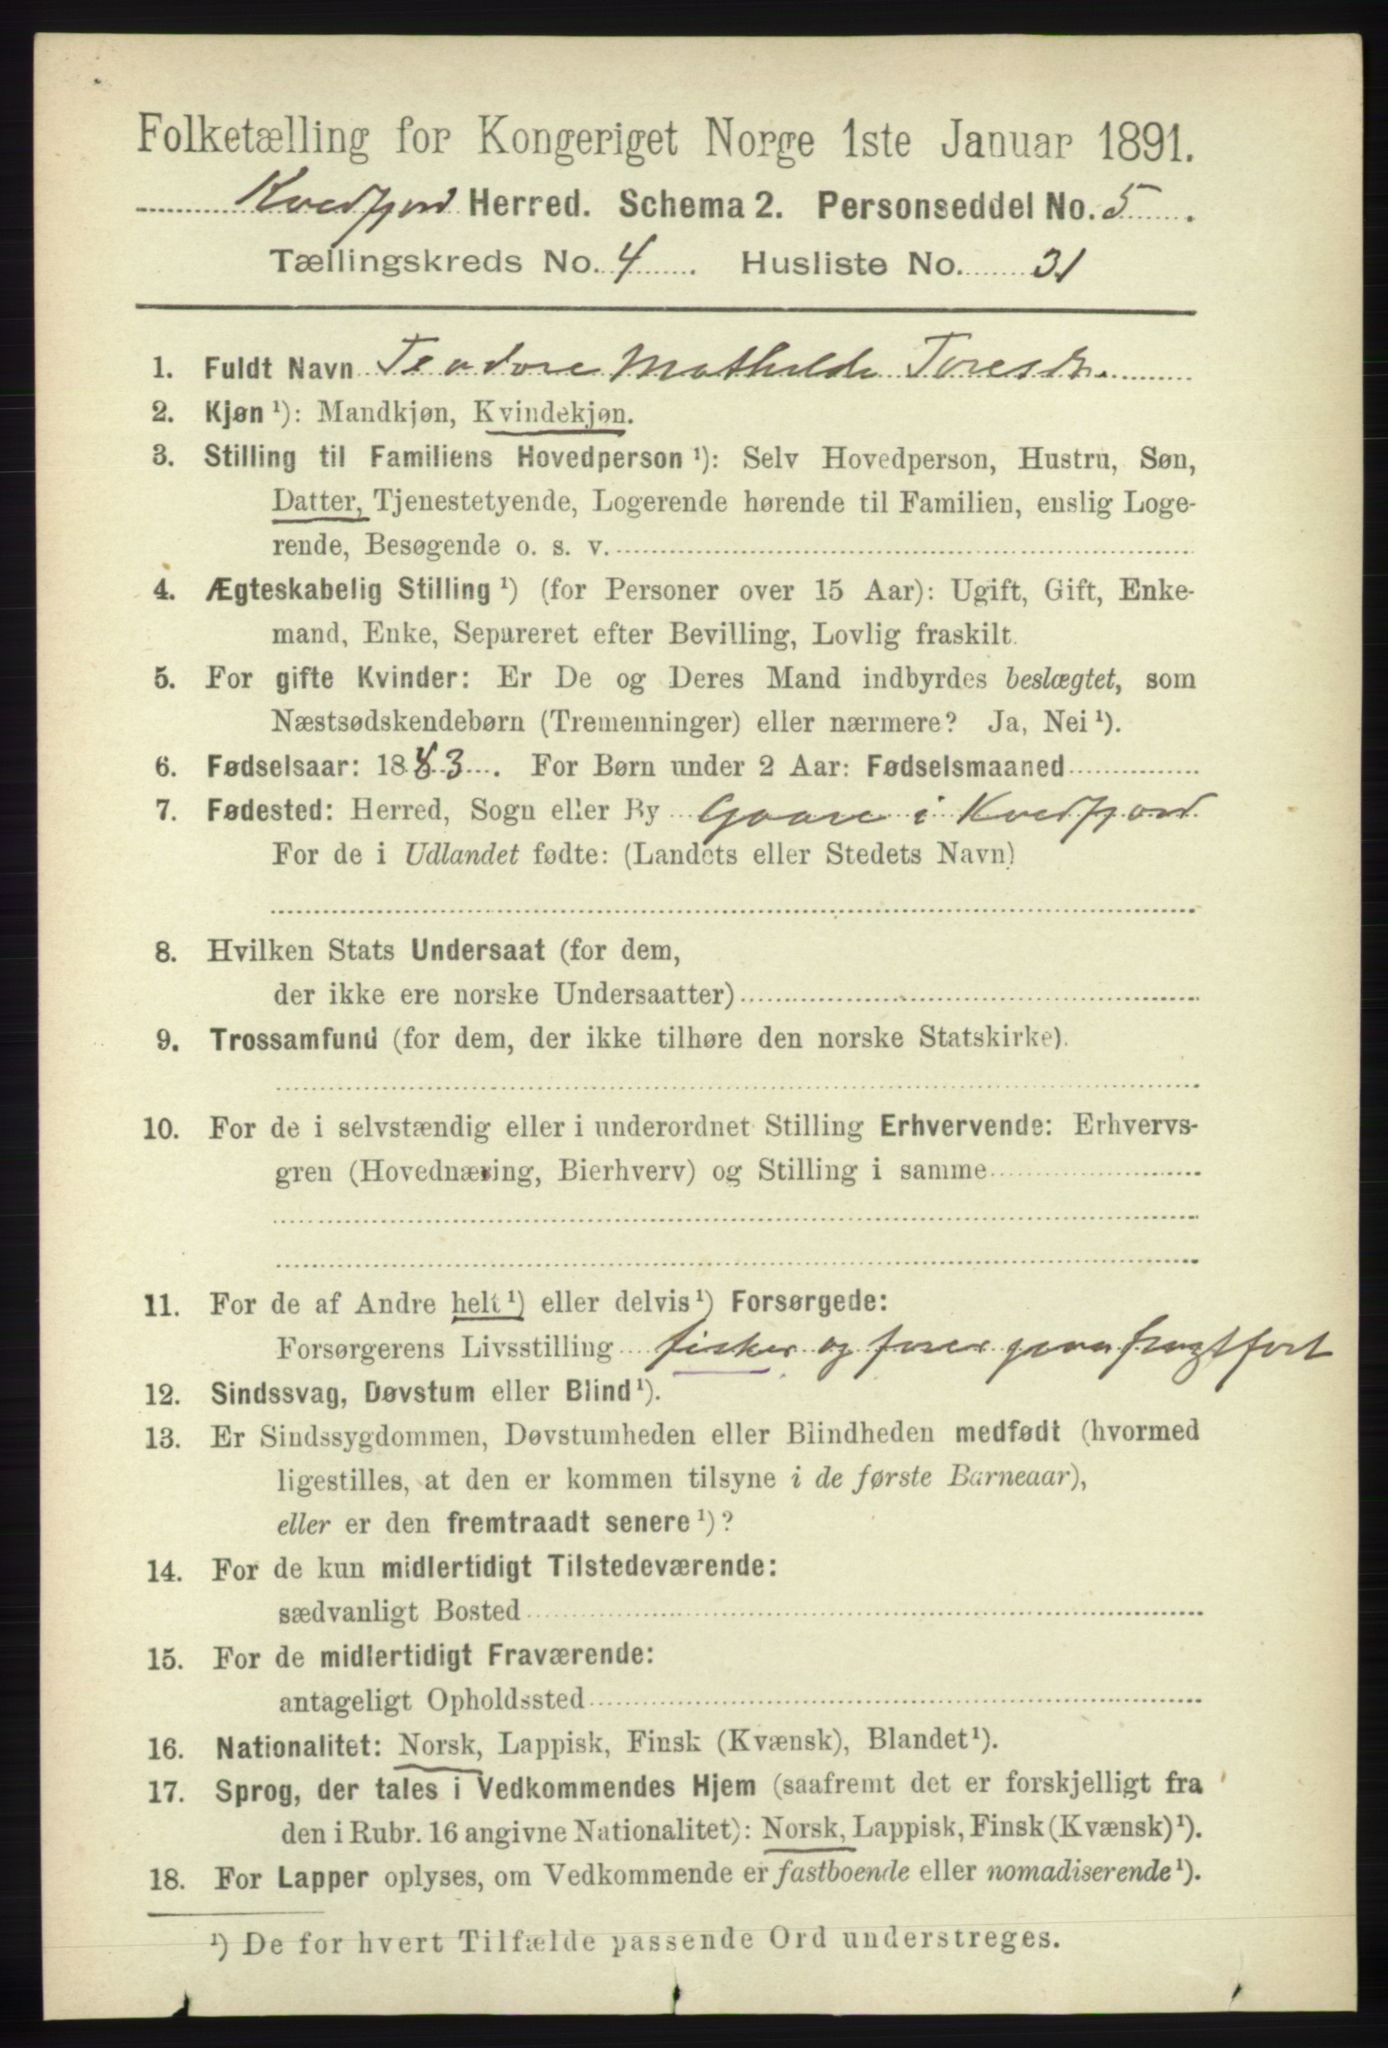 Folketælling for Kongeriget Norge 1ste Januar 1891.
Kvedfjord Herred. Schema 2. Personseddel No. 5.
Tællingskreds No. 4. Husliste No. 31
1. Fuldt Navn Teodore Mathilde
2. Kjøn ¹): Mandkjøn, Kvindekjøn.
3. Stilling til Familiens Hovedperson ¹): Selv Hovedperson, Hustru, Søn,
Datter, Tjenestetyende, Logerende hørende til Familien, enslig Loge-
rende, Besøgende o. s. v.
4. Ægteskabelig Stilling ¹) (for Personer over 15 Aar): Ugift, Gift, Enke-
mand, Enke, Separeret efter Bevilling, Lovlig fraskilt.
5. For gifte Kvinder: Er De og Deres Mand indbyrdes beslægtet, som
Næstsødskendebørn (Tremenninger) eller nærmere? Ja, Nei ¹).
6. Fødselsaar: 1883. For Børn under 2 Aar: Fødselsmaaned
7. Fødested: Herred, Sogn eller By Gaare i Kvedfjord
For de i Udlandet fødte: (Landets eller Stedets Navn)
8. Hvilken Stats Undersaat (for dem,
der ikke ere norske Undersaatter)
9. Trossamfund (for dem, der ikke tilhøre den norske Statskirke).
10. For de i selvstændig eller i underordnet Stilling Erhvervende: Erhvervs-
gren (Hovednæring, Bierhverv) og Stilling i samme
11. For de af Andre helt ¹) eller delvis ¹) Forsørgede:
Forsørgerens Livsstilling fisker og fører fragtfart
12. Sindssvag, Døvstum eller Blind ¹).
13. Er Sindssygdommen, Døvstumheden eller Blindheden medfødt (hvormed
ligestilles, at den er kommen tilsyne i de første Barneaar),
eller er den fremtraadt senere ¹)?
14. For de kun midlertidigt Tilstedeværende:
sædvanligt Bosted
15. For de midlertidigt Fraværende:
antageligt Opholdssted
16. Nationalitet: Norsk, Lappisk, Finsk (Kvænsk), Blandet ¹).
17. Sprog, der tales i Vedkommendes Hjem (saafremt det er forskjelligt fra
den i Rubr. 16 angivne Nationalitet): Norsk, Lappisk, Finsk (Kvænsk) ¹).
18. For Lapper oplyses, om Vedkommende er fastboende eller nomadiserende ¹).
¹) De for hvert Tilfælde passende Ord understreges.